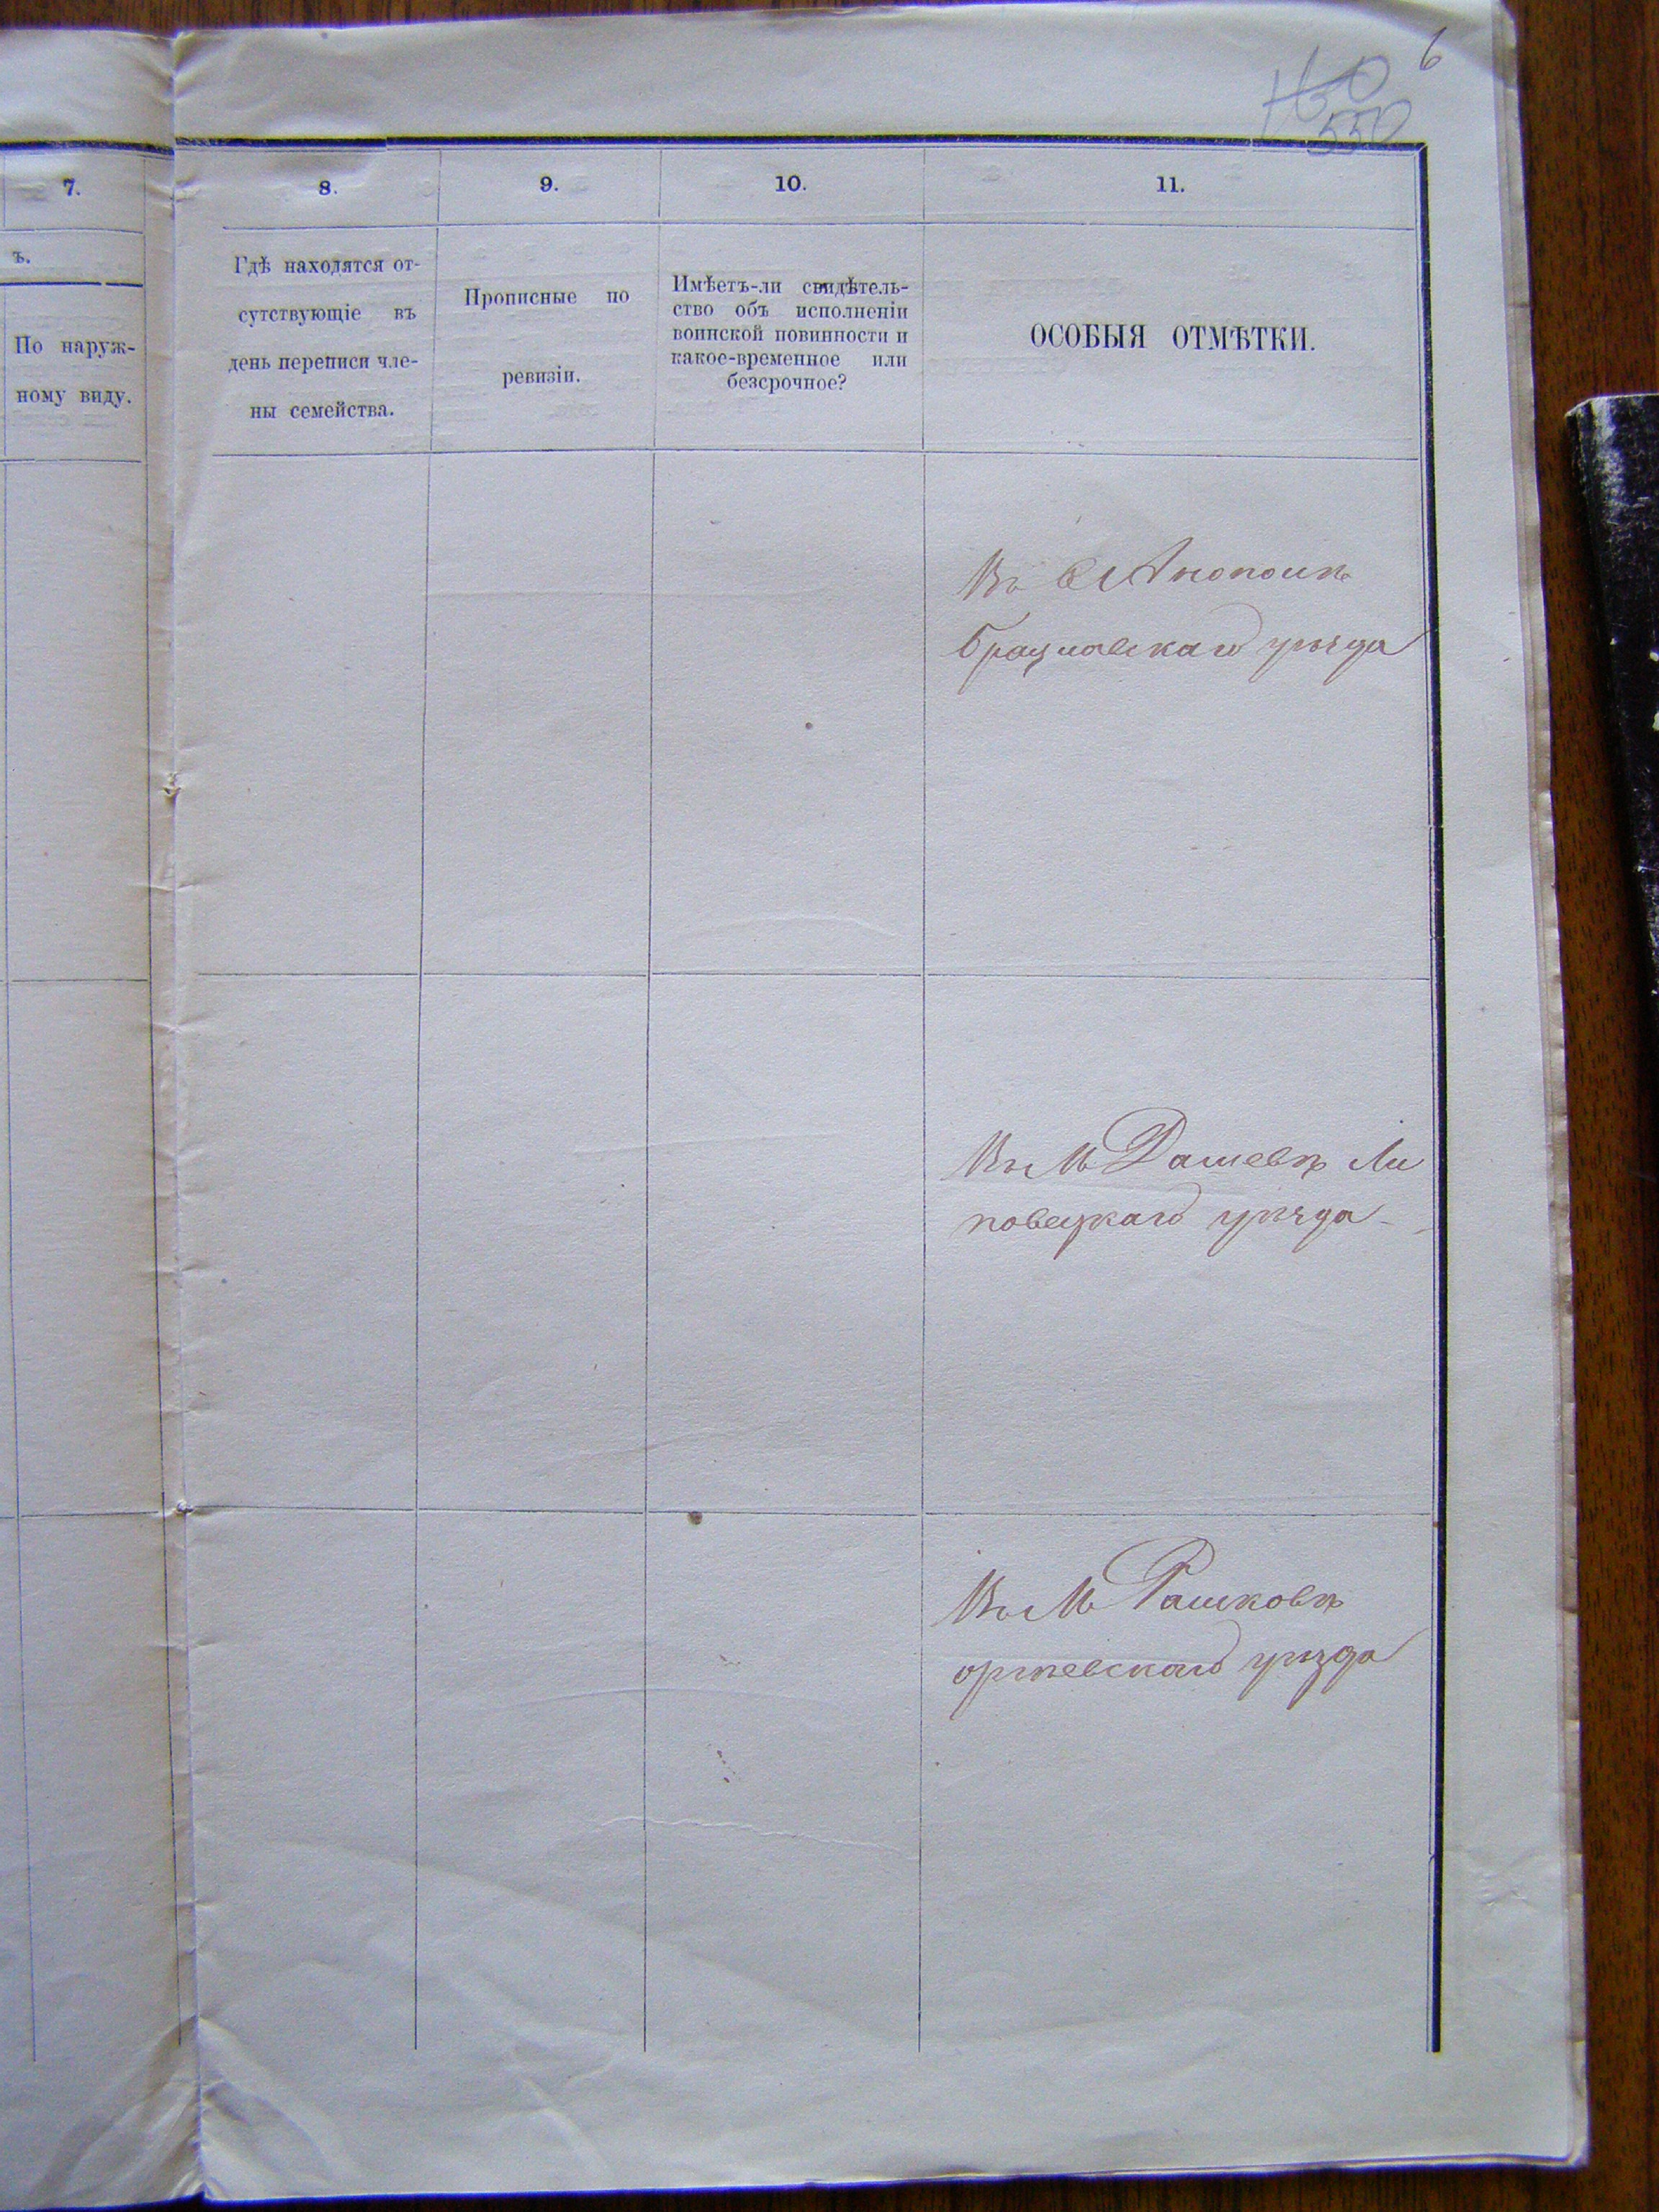 6
550
7.
8.
9.
10.
11.
ъ.
По наруж-
ному виду.
Гдѣ находятся от-
сутствующіе въ
день переписи чле-
ны семейства.
Прописные по
ревизіи.
Имѣетъ-ли свидѣтель-
ство объ исполненіи
воинской повинности и
какое-временное или
безсрочное?
ОСОБЫЯ ОТМѢТКИ.
Въ С
Брацлавскаго уѣзда
Въ М Дашевѣ Ли
повецкаго уѣзда
Въ М Рашковѣ
уѣзда